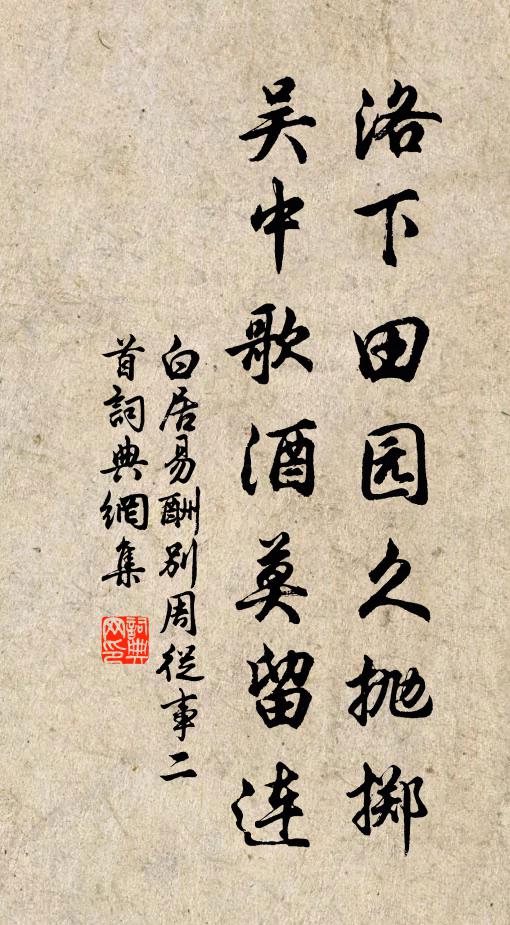 洛下田园久抛掷
吴中歌酒莫留连
白居易酬别周從事二
首詞典網集
詞典
网印